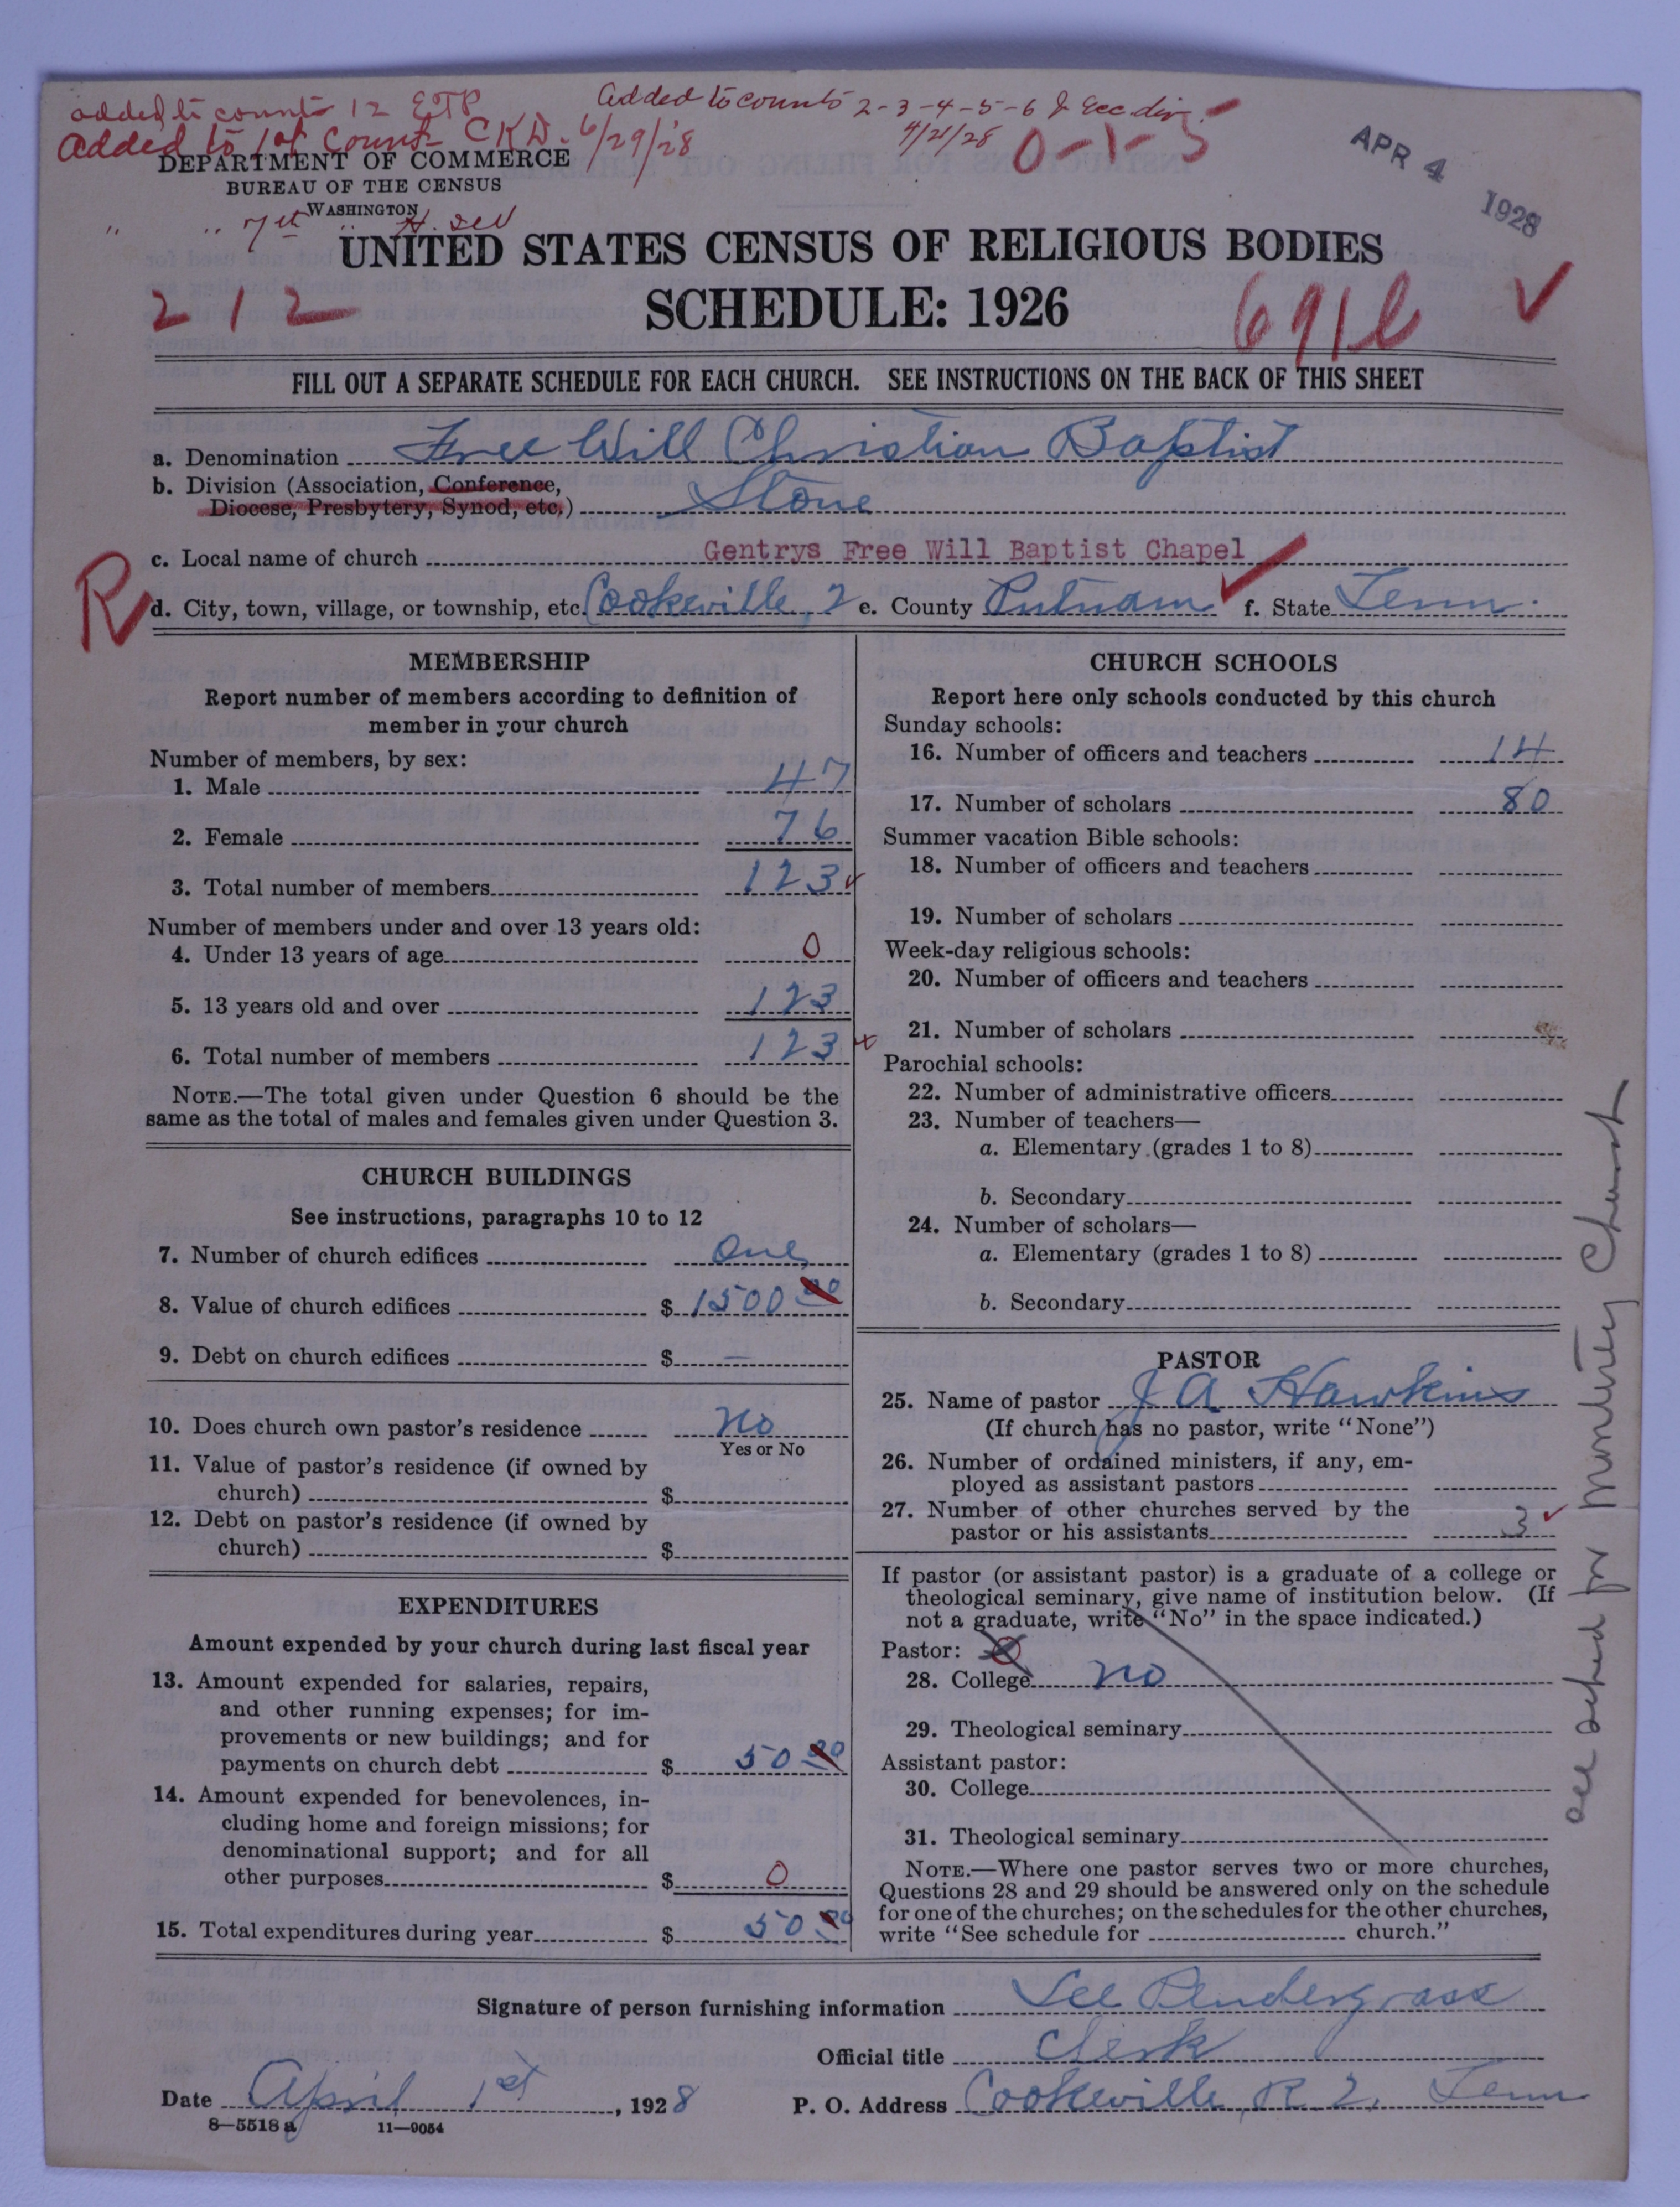 added to counts 12 ETP
Added to counts 2-3-4-5-6 & Ecc div.
4/21/28
Added to 1st Count- CKD. 6/29/28
0-1-5
APR 4 1928
DEPARTMENT OF COMMERCE
BUREAU OF THE CENSUS
WASHINGTON
" " 7th "
UNITED STATES CENSUS OF RELIGIOUS BODIES
SCHEDULE: 1926
212
FILL OUT A SEPARATE SCHEDULE FOR EACH CHURCH. SEE INSTRUCTIONS ON THE BACK OF THIS SHEET
a. Denomination Free Will Christian Baptist
b. Division (Association, Conference,
Diocese, Presbytery, Synod, etc.) Stone
c. Local name of church Gentrys Free Will Baptist Chapel
R
d. City, town, village, or township, etc. Cookeville, 2 e. County Putnam f. State Tenn.
MEMBERSHIP
Report number of members according to definition of
member in your church
Number of members, by sex:
1. Male 47
2. Female 76
3. Total number of members 123
Number of members under and over 13 years old:
4. Under 13 years of age 0
5. 13 years old and over 123
6. Total number of members 123
NOTE.—The total given under Question 6 should be the
same as the total of males and females given under Question 3.
CHURCH BUILDINGS
See instructions, paragraphs 10 to 12
7. Number of church edifices One
8. Value of church edifices $ 1500 00
9. Debt on church edifices $ —
10. Does church own pastor's residence No
Yes or No
11. Value of pastor's residence (if owned by
church) $
12. Debt on pastor's residence (if owned by
church) $
EXPENDITURES
Amount expended by your church during last fiscal year
13. Amount expended for salaries, repairs,
and other running expenses; for im-
provements or new buildings; and for
payments on church debt $ 50 00
14. Amount expended for benevolences, in-
cluding home and foreign missions; for
denominational support; and for all
other purposes $ 0
15. Total expenditures during year $ 50 00
CHURCH SCHOOLS
Report here only schools conducted by this church
Sunday schools:
16. Number of officers and teachers 14
17. Number of scholars 80
Summer vacation Bible schools:
18. Number of officers and teachers
19. Number of scholars
Week-day religious schools:
20. Number of officers and teachers
21. Number of scholars
Parochial schools:
22. Number of administrative officers
23. Number of teachers—
a. Elementary (grades 1 to 8)
b. Secondary
24. Number of scholars—
a. Elementary (grades 1 to 8)
b. Secondary
PASTOR
25. Name of pastor J A Hawkins
(If church has no pastor, write "None")
26. Number of ordained ministers, if any, em-
ployed as assistant pastors
27. Number of other churches served by the
pastor or his assistants 3
If pastor (or assistant pastor) is a graduate of a college or
theological seminary, give name of institution below. (If
not a graduate, write "No" in the space indicated.)
Pastor:
28. College No
29. Theological seminary
Assistant pastor:
30. College
31. Theological seminary
NOTE.—Where one pastor serves two or more churches,
Questions 28 and 29 should be answered only on the schedule
for one of the churches; on the schedules for the other churches,
write "See schedule for church."
See sched for Monterey Church
Signature of person furnishing information Lee Pendergrass
Official title Clerk
Date April 1st, 1928 P. O. Address Cookeville, R 2, Tenn
8—5518 a 11—9054